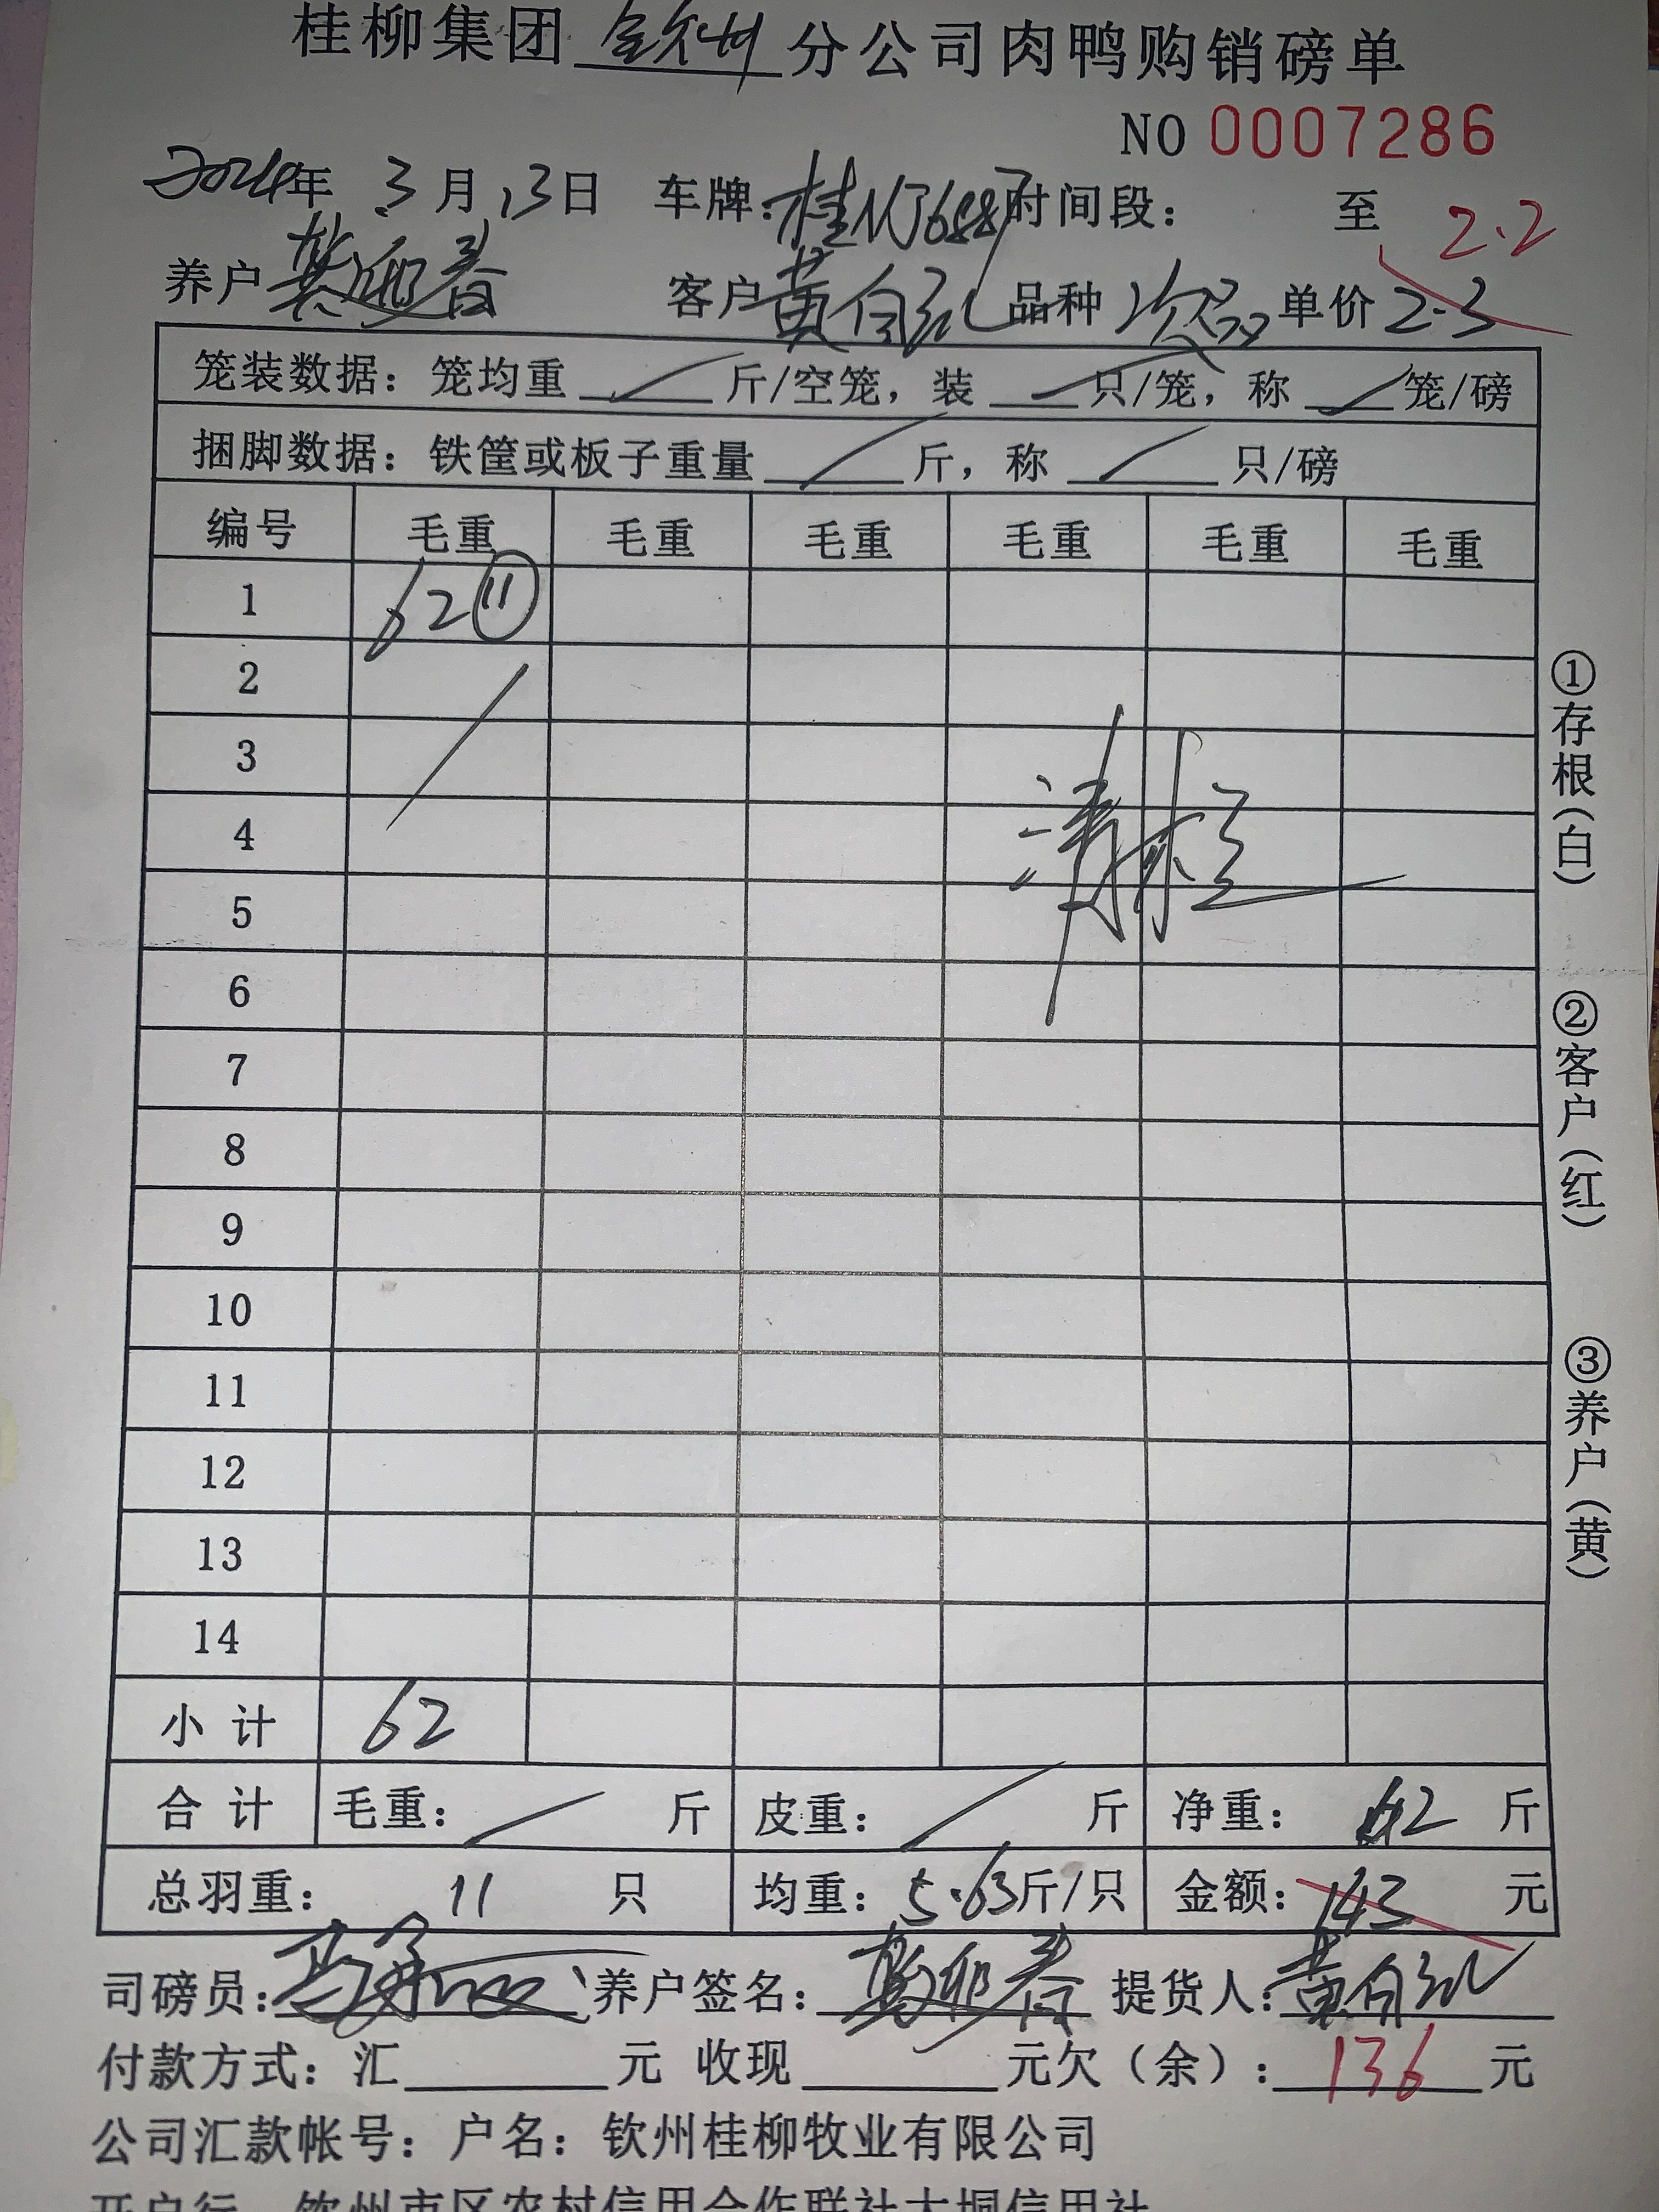 桂柳集团 钦州 分公司肉鸭购销磅单
NO 0007286
2024年 3月 13日 车牌: 桂N 时间段: 至 2.2
养户 客户 黄 品种 次品 单价 2.3
笼装数据: 笼均重 斤/空笼, 装 只/笼, 称 笼/磅
捆脚数据: 铁筐或板子重量 斤, 称 只/磅
编号 毛重 毛重 毛重 毛重 毛重 毛重
1 62 11
2
3
4
5
6
7
8
9
10
11
12
13
14
小计 62
合计 毛重: 斤 皮重: 斤 净重: 62 斤
总羽重: 11 只 均重: 5.63斤/只 金额: 143 元
司磅员: 养户签名: 提货人: 黄
付款方式: 汇 元 收现 元欠(余): 136 元
公司汇款帐号: 户名: 钦州桂柳牧业有限公司
开户行 钦州市区农村信用合作联社大垌信用社
①存根(白)
②客户(红)
③养户(黄)